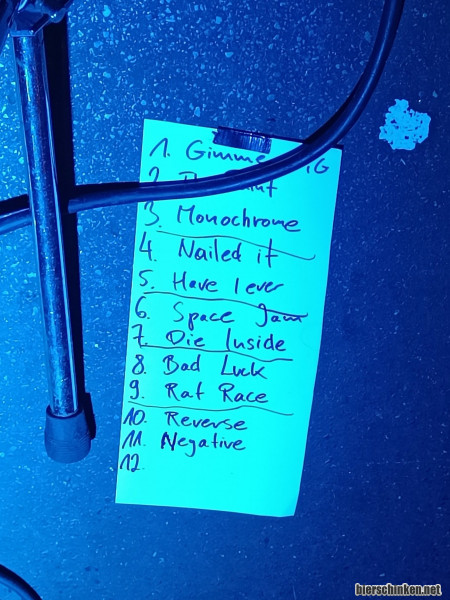 1. Gimme
2.
3. Monochrome
4. Nailed it
5. Have I ever
6. Space Jam
7. Die Inside
8. Bad Luck
9. Rat Race
10. Reverse
11. Negative
12.
bierschinken.net